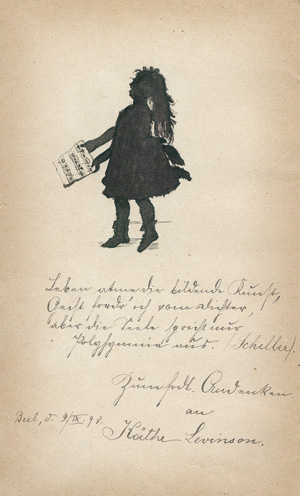 Leben atme die bildende Kunst,
Geist fordr' ich vom Dichter
aber die Seele spricht nur
Polyhymnia aus. (Schiller).
Zum frdl. Andenken
an
Käthe Levinson.
Berl., d. 9/IX 98.